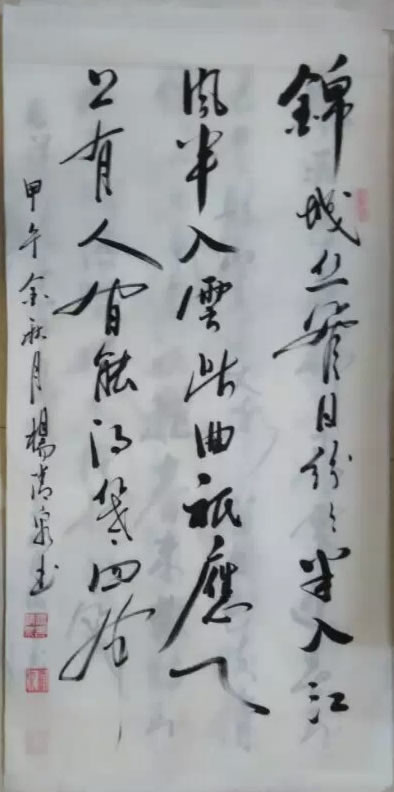 錦城丝管日紛々半入江
風半入雲此曲祇應天
上有人間能得幾回聞
甲午金秋月楊清泉书